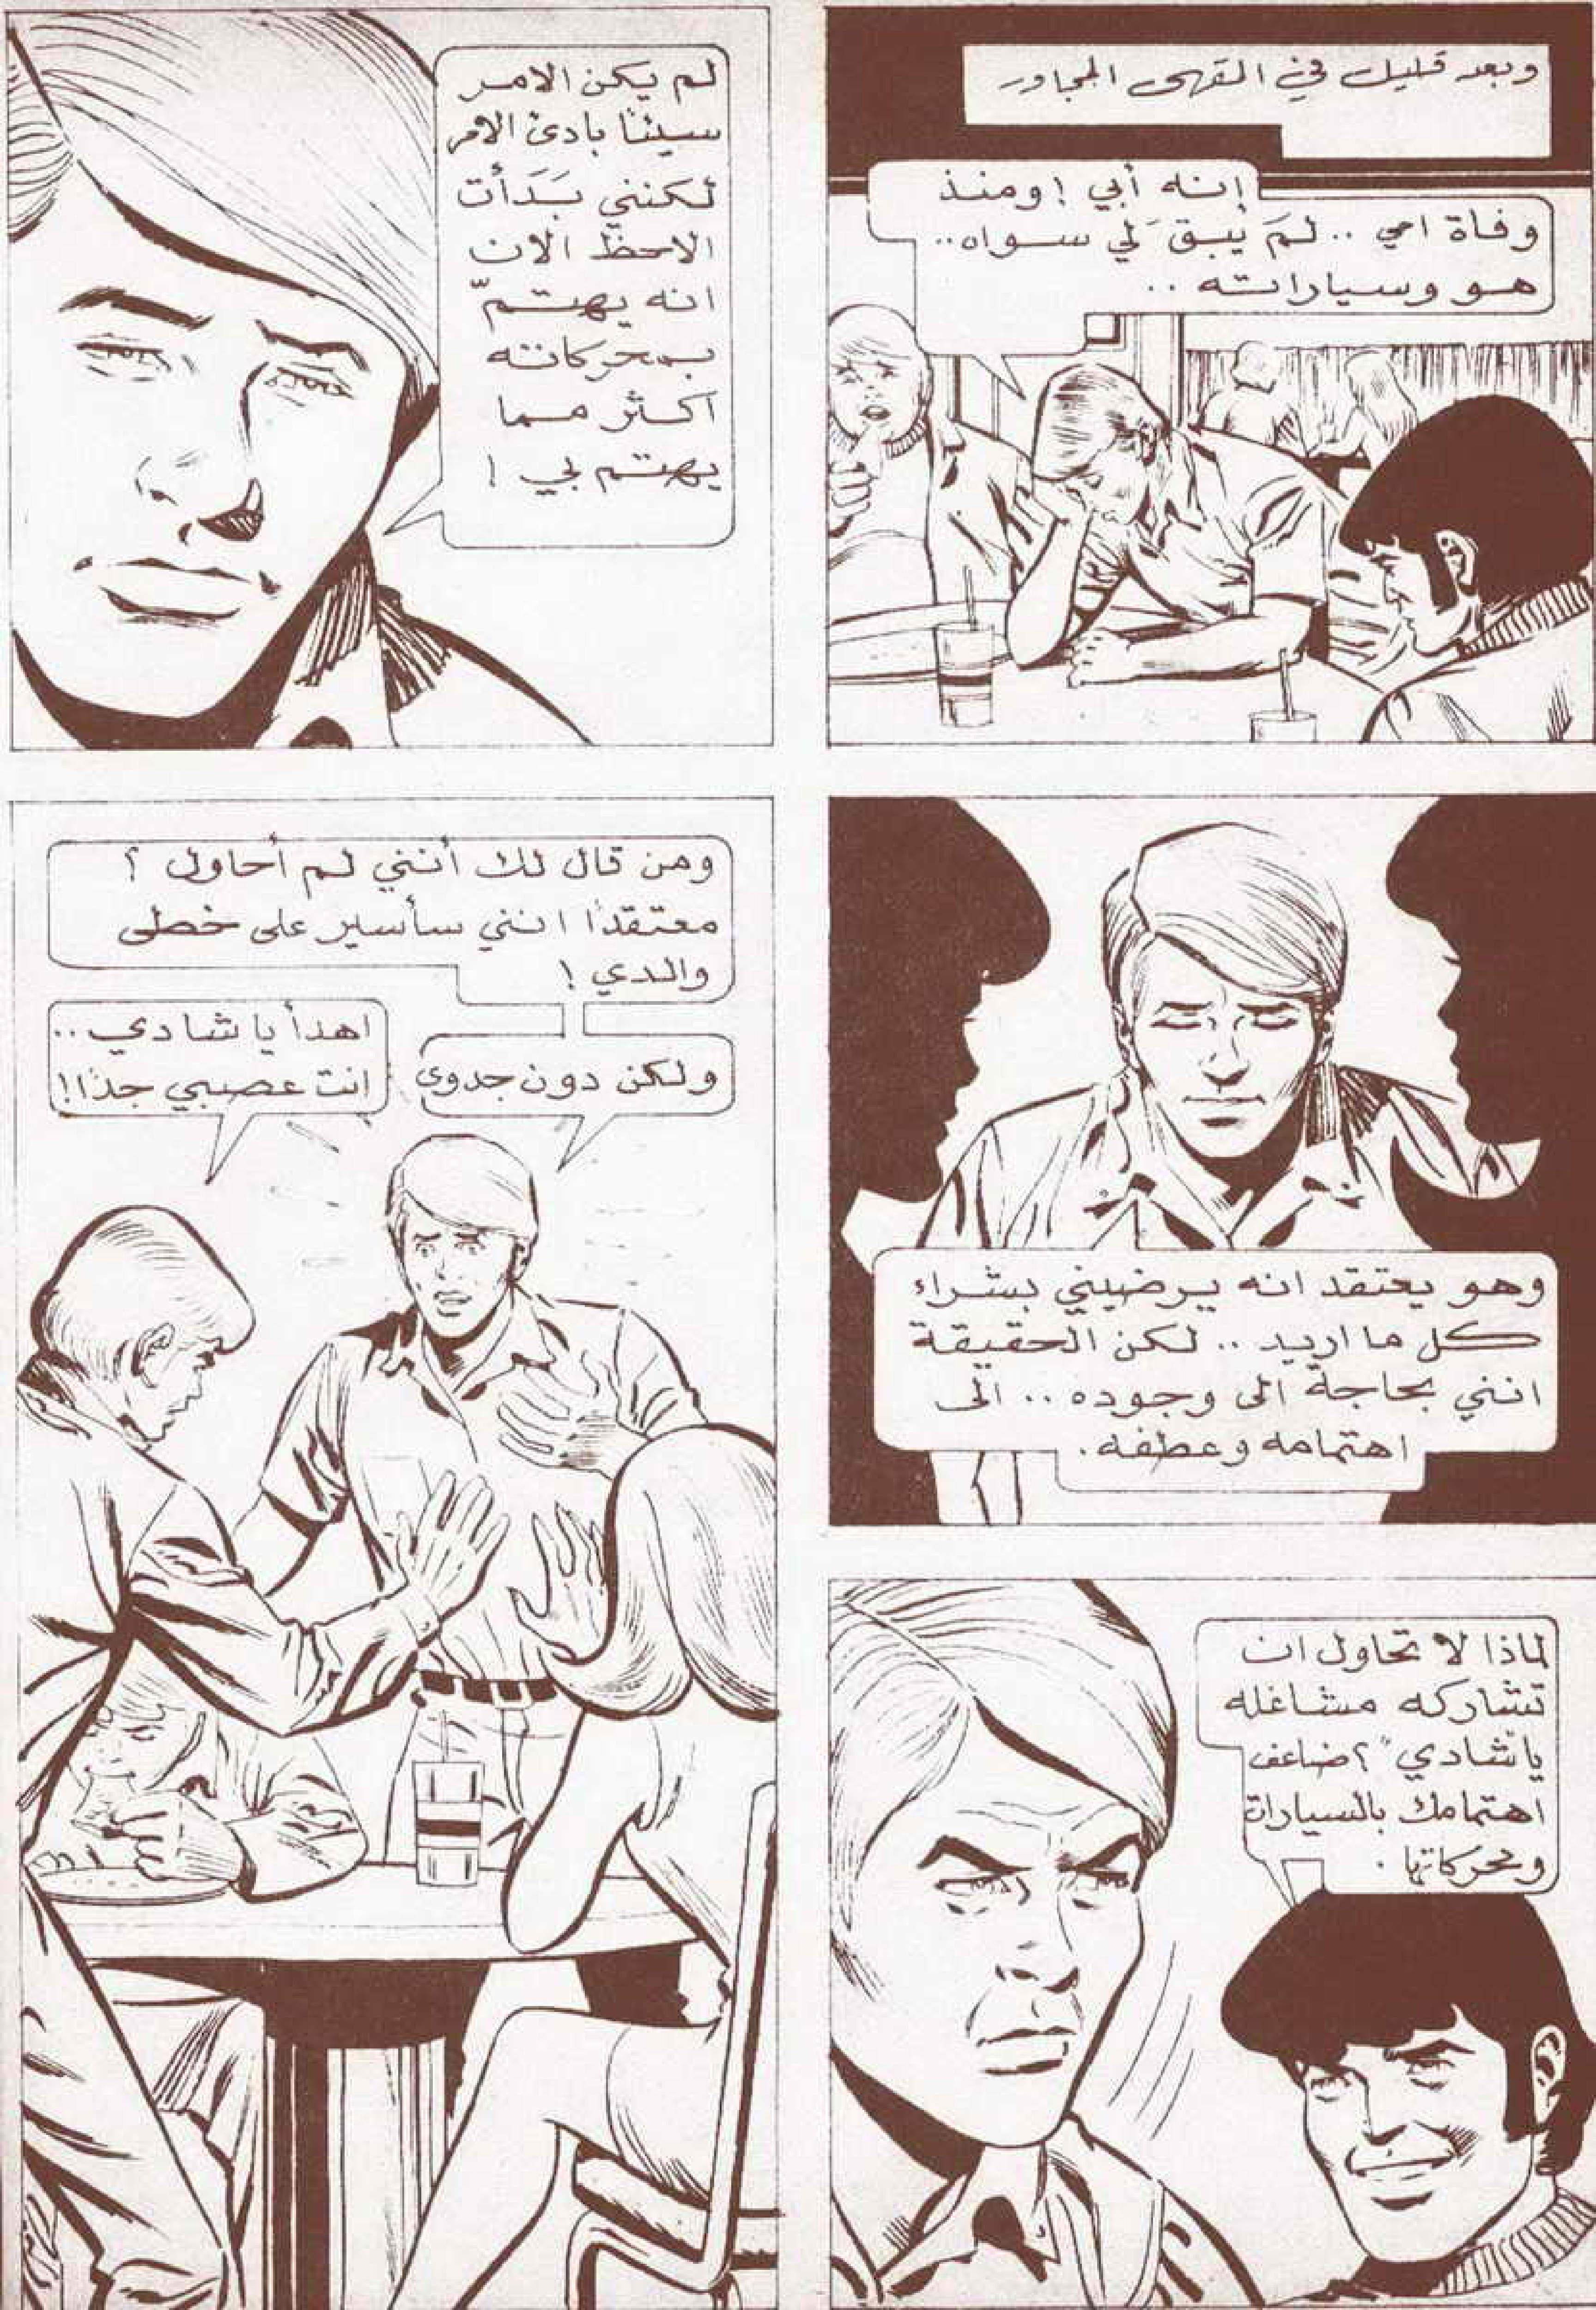 وبعد قليل في المقهى المجاور
إنه أبي ! ومنذ
وفاة امي .. لمَ يبق لي سواه ..
هو وسياراته ..
لم يكن الامر
سيئا بادئ الامر
لكنني بَدَأت
الاحظ الان
انه يهتمّ
بمحركاته
اكثر مما
يهتم بي !
وهو يعتقد انه يرضيني بشراء
كل ما اريد .. لكن الحقيقة
انني بحاجة الى وجوده .. الى
اهتمامه وعطفه .
لماذا لا تحاول ان
تشاركه مشاغله
يا شادي " ؟ ضاعف
اهتمامك بالسيارات
ومحركاتها .
ومن قال لك أنني لم أحاول ؟
معتقدًا انني سأسير على خطى
والدي !
ولكن دون جدوى
اهدأ يا شادي ..
انت عصبي جدًا !